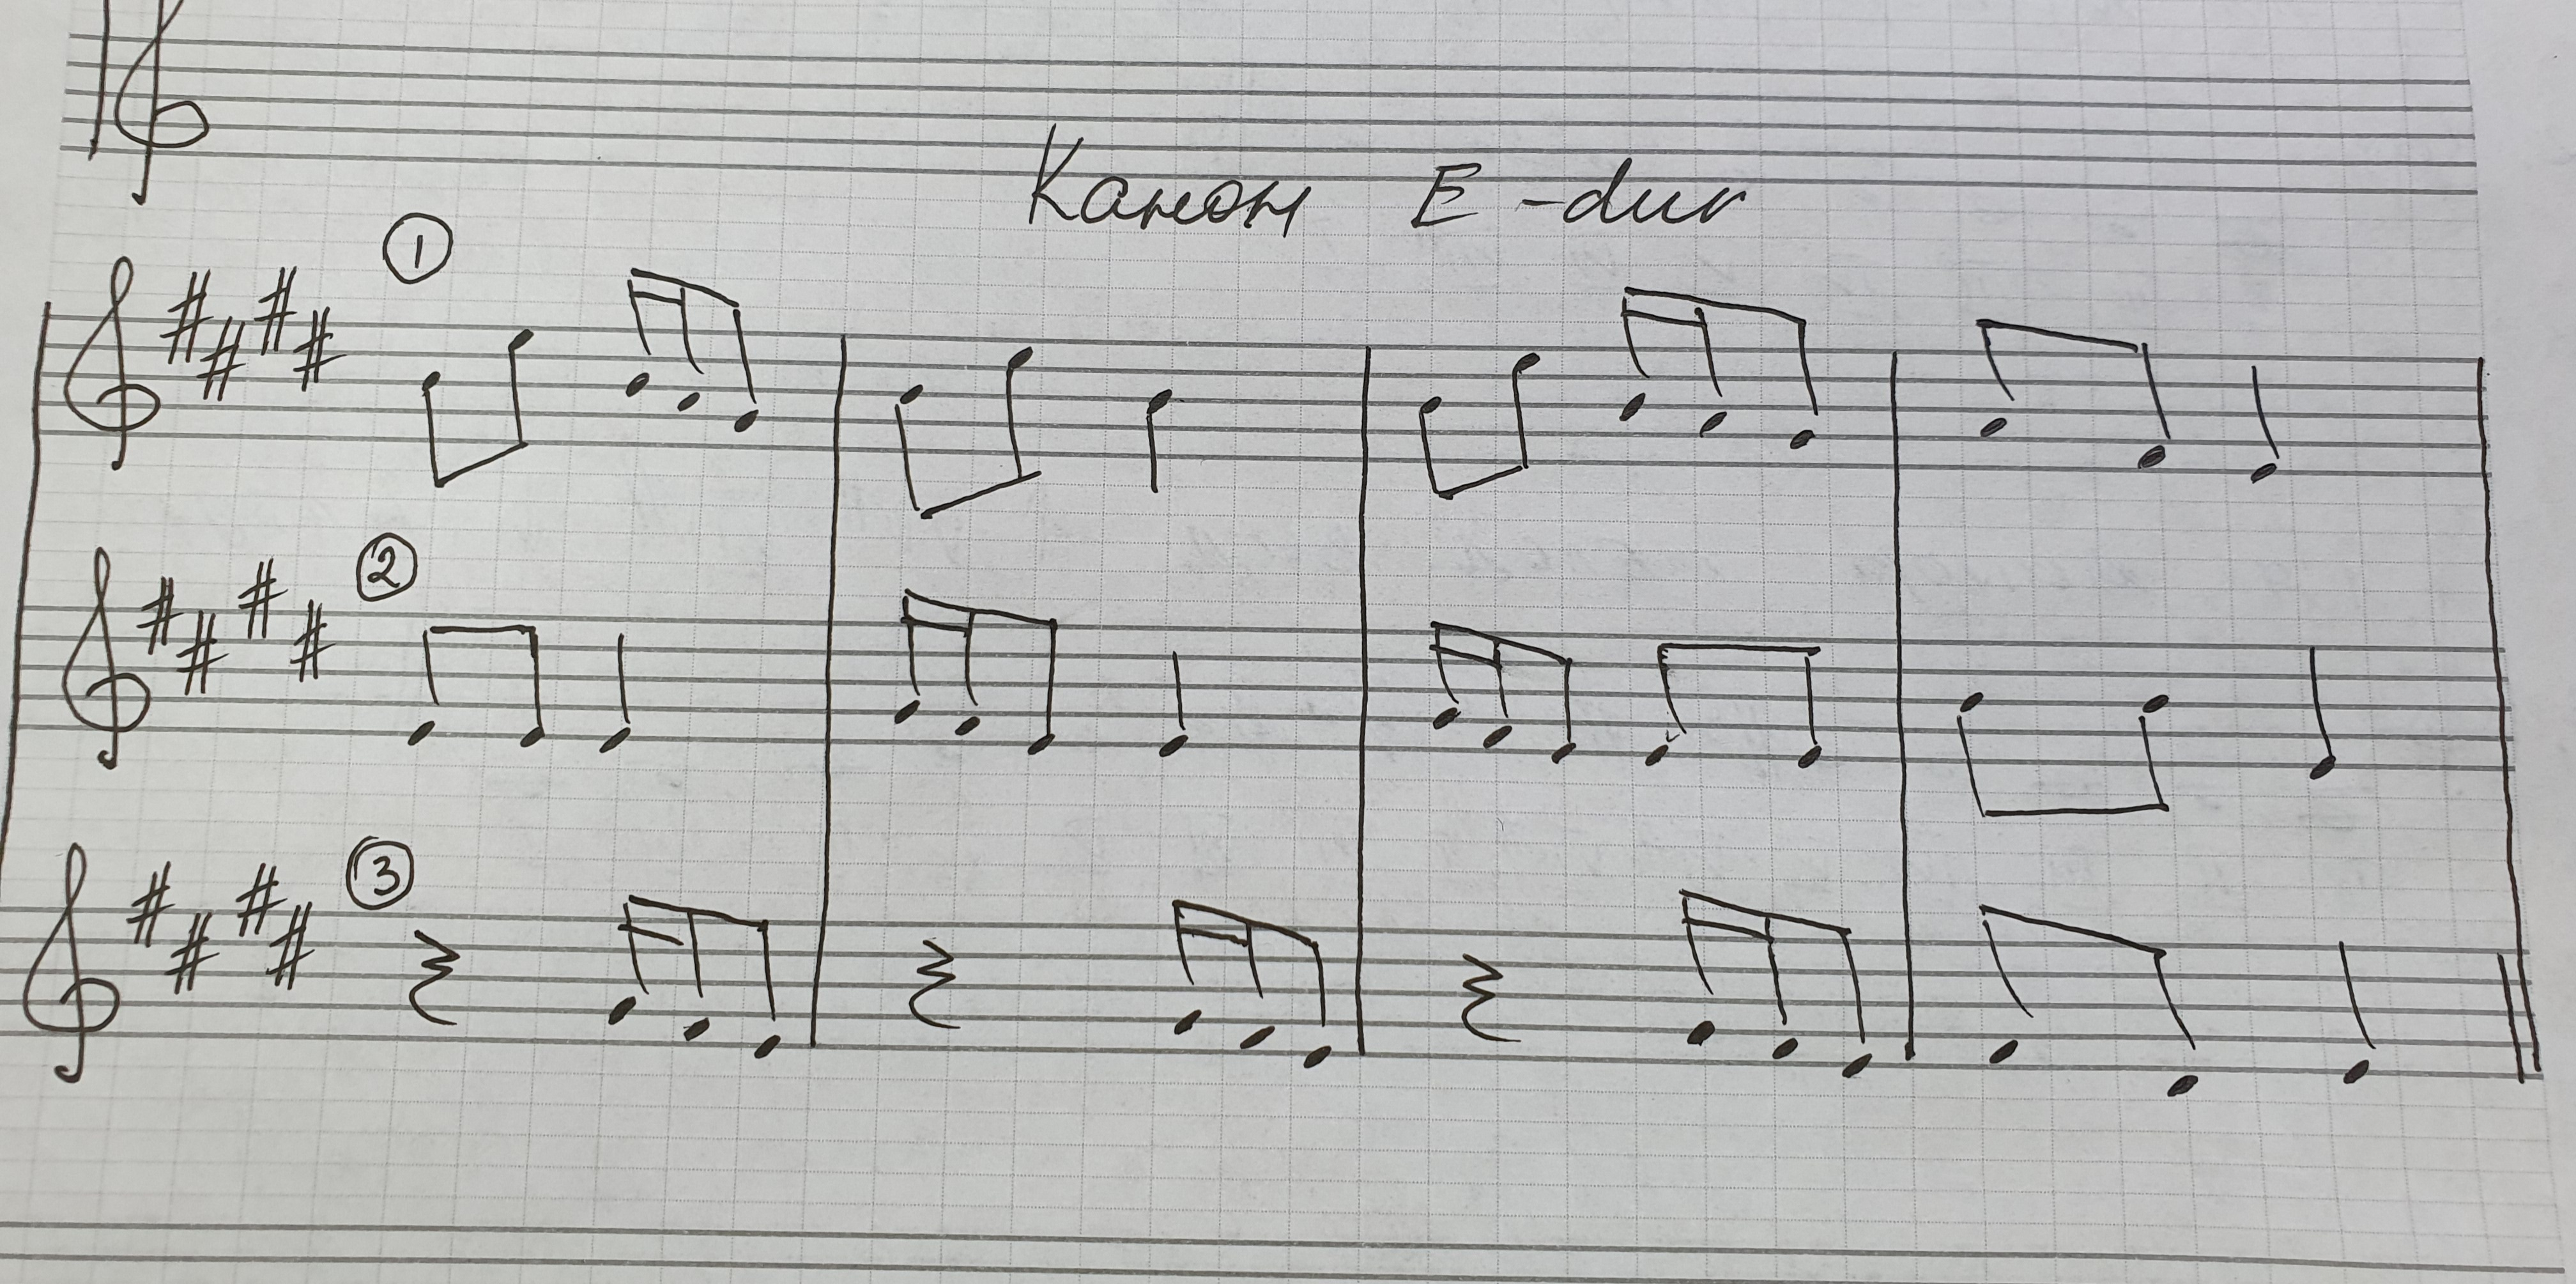 Канон E-dur
1
2
3